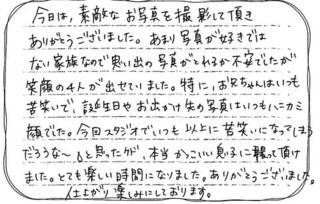 今日は、素敵なお写真を撮影して頂き
ありがとうございました。あまり写真が好きでは
ない家族なので思い出の写真がとれるか不安でしたが
笑顔の4人が出せていました。特に、お兄ちゃんはいつも
苦笑いで、誕生日やお出かけ先の写真はいつもハニカミ
顔でした。今回スタジオでいつも以上に苦笑いになってしまう
だろうな〜と思ったケド、本当かっこいい息子に撮って頂け
ました。とても楽しい時間になりました。ありがとうございました。
仕上がり楽しみにしております。